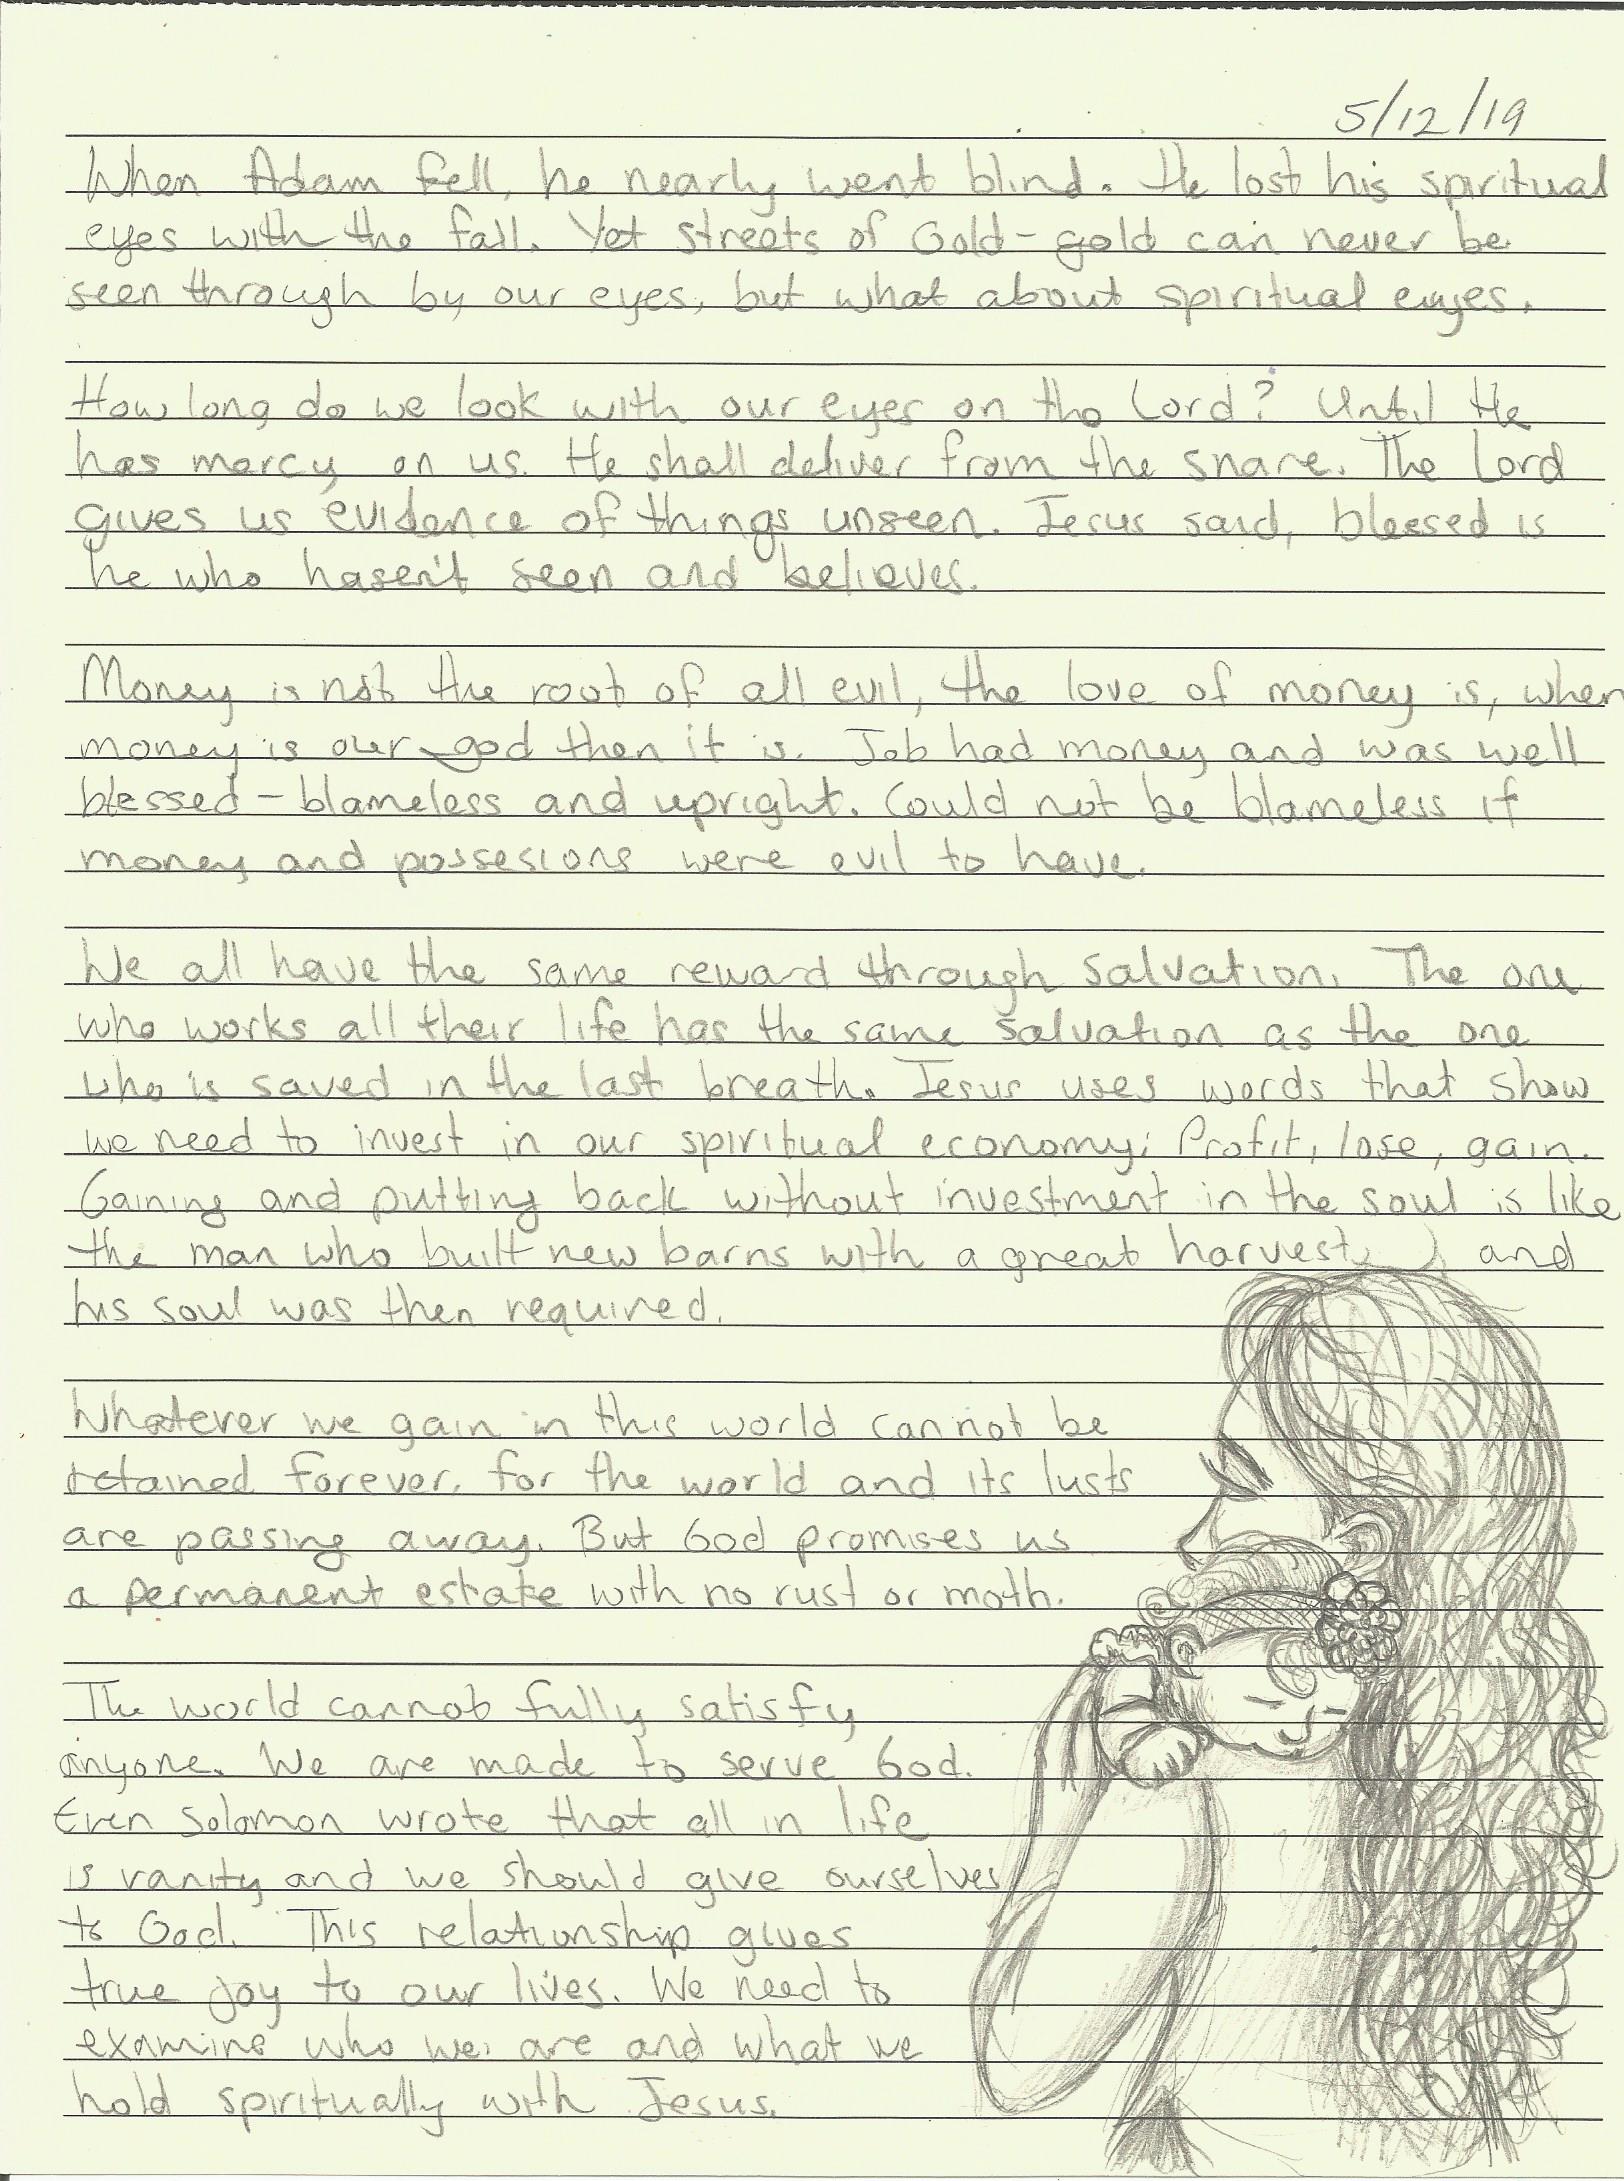 5/12/19
When Adam fell, he nearly went blind. He lost his spiritual
eyes with the fall. Yet streets of Gold-gold can never be
seen through by our eyes, but what about spiritual eyes.
How long do we look with our eyes on the Lord? Until He
has mercy on us. He shall deliver from the snare. The Lord
gives us evidence of things unseen. Jesus said, blessed is
he who hasen't seen and believes.
Money is not the root of all evil, the love of money is, when
money is our god then it is. Job had money and was well
blessed - blameless and upright. Could not be blameless if
money and possesions were evil to have.
We all have the same reward through salvation. The one
who works all their life has the same salvation as the one
who is saved in the last breath. Jesus uses words that show
we need to invest in our spiritual economy: Profit, lose, gain.
Gaining and putting back without investment in the soul is like
the man who built new barns with a great harvest, and
his soul was then required.
Whatever we gain in this world cannot be
retained forever, for the world and its lusts
are passing away. But God promises us
a permanent estate with no rust or moth.
The world cannot fully satisfy
anyone. We are made to serve God.
Even Solomon wrote that all in life
is vanity and we should give ourselves
to God. This relationship gives
true joy to our lives. We need to
examine who we are and what we
hold spiritually with Jesus.